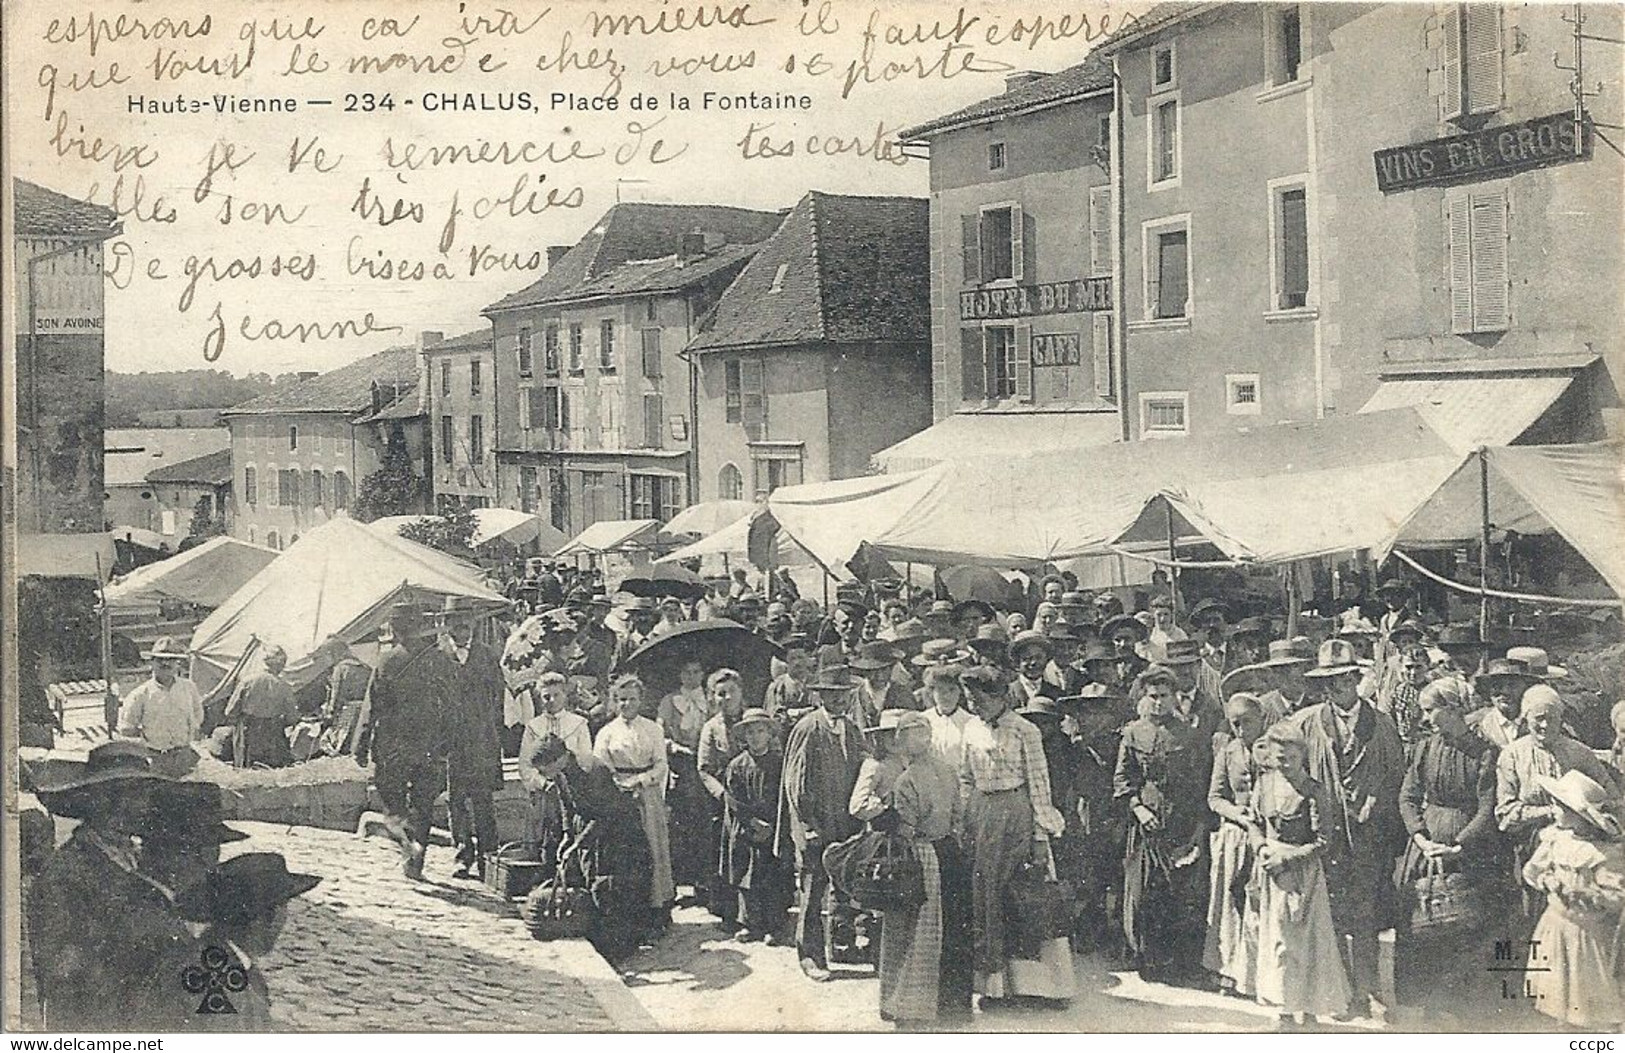 esperons que ca ira mieux il faut esperer
que tout le monde chez vous se porte
Haute-Vienne — 234 - CHALUS, Place de la Fontaine
bien je te remercie de tes cartes
elles son très jolies
De grosses bises à vous
Jeanne
SON AVOINE
VINS EN GROS
HOTEL DU MI
CAFE
C C C C
M. T.
I. L.
cccpc